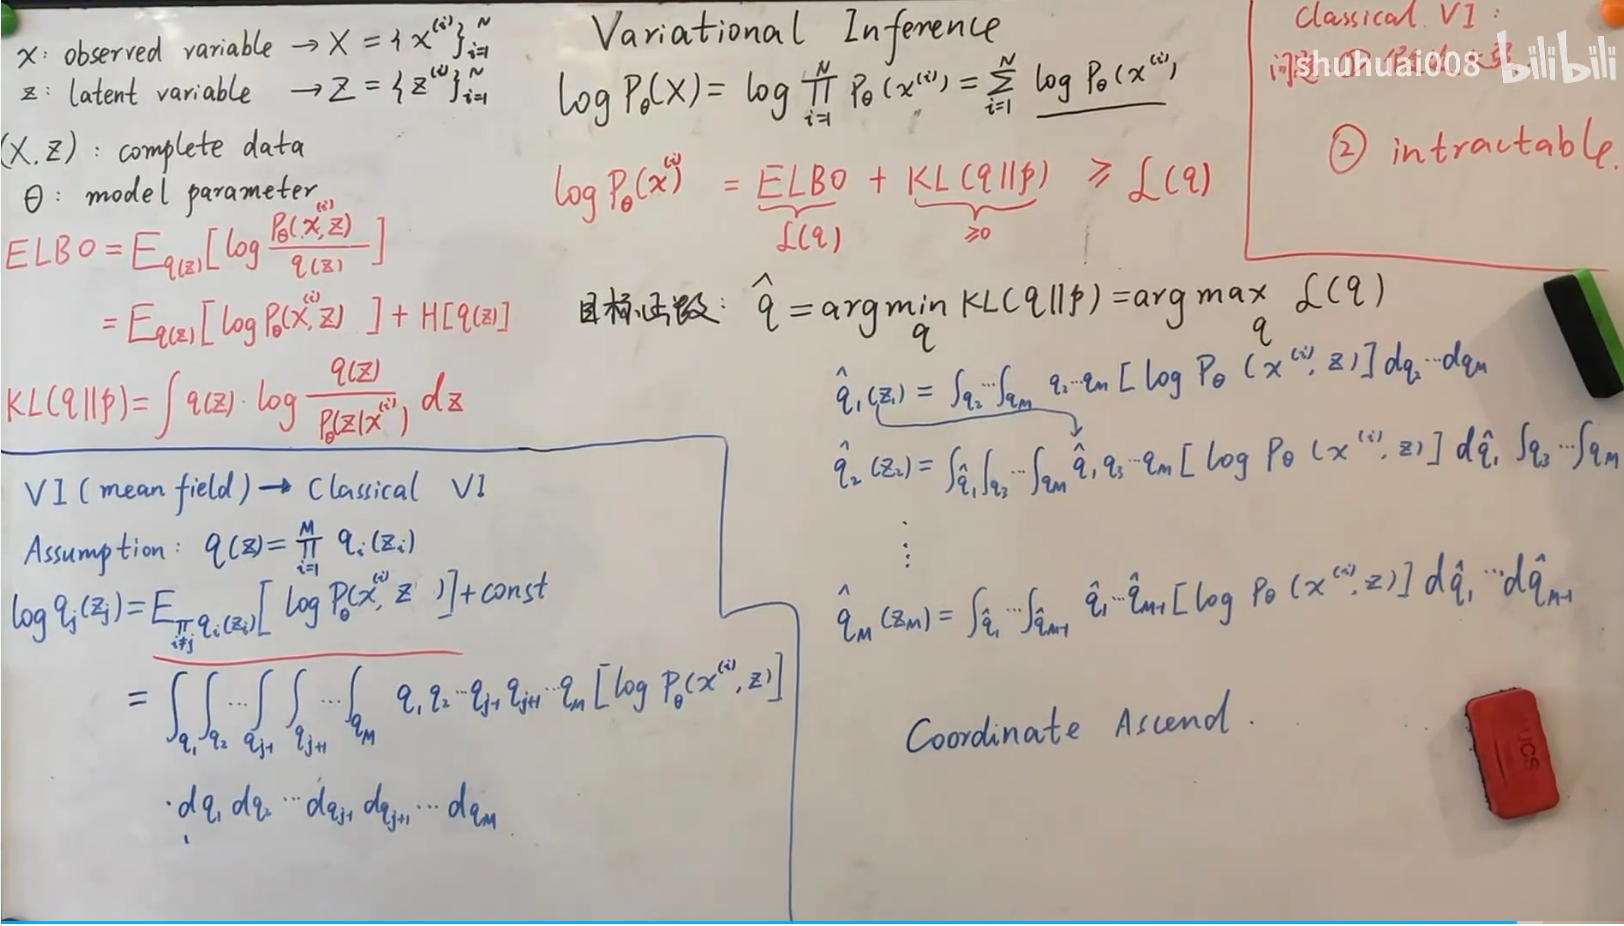 x: observed variable → X = {x^(i)}_{i=1}^N
z: latent variable → Z = {z^(i)}_{i=1}^N
(X, Z): complete data
θ: model parameter
ELBO = E_{q(z)}[log P_θ(x^(i), z) / q(z)]
= E_{q(z)}[log P_θ(x^(i), z)] + H[q(z)]
KL(q||p) = ∫ q(z) · log q(z) / P_θ(z|x^(i)) dz
Variational Inference
log P_θ(X) = log ∏_{i=1}^N P_θ(x^(i)) = Σ_{i=1}^N log P_θ(x^(i))
log P_θ(x^(i)) = ELBO + KL(q||p) ≥ L(q)
L(q) ≥0
目标函数: q̂ = argmin_q KL(q||p) = argmax_q L(q)
Classical VI:
问题
② intractable.
shuhuai008 bilibili
VI (mean field) → Classical VI
Assumption: q(z) = ∏_{i=1}^M q_i(z_i)
log q_j(z_j) = E_{∏_{i≠j} q_i(z_i)}[log P_θ(x^(i), z)] + const
= ∫_{q_1} ∫_{q_2} ··· ∫_{q_{j-1}} ∫_{q_{j+1}} ··· ∫_{q_M} q_1 q_2 ··· q_{j-1} q_{j+1} ··· q_M [log P_θ(x^(i), z)]
· dq_1 dq_2 ··· dq_{j-1} dq_{j+1} ··· dq_M
q̂_1(z_1) = ∫_{q_2} ··· ∫_{q_M} q_2 ··· q_M [log P_θ(x^(i), z)] dq_2 ··· dq_M
q̂_2(z_2) = ∫_{q̂_1} ∫_{q_3} ··· ∫_{q_M} q̂_1 q_3 ··· q_M [log P_θ(x^(i), z)] dq̂_1 ∫q_3 ··· ∫q_M
⋮
q̂_M(z_M) = ∫_{q̂_1} ··· ∫_{q̂_{M-1}} q̂_1 ··· q̂_{M-1} [log P_θ(x^(i), z)] dq̂_1 ··· dq̂_{M-1}
Coordinate Ascend.
UCS